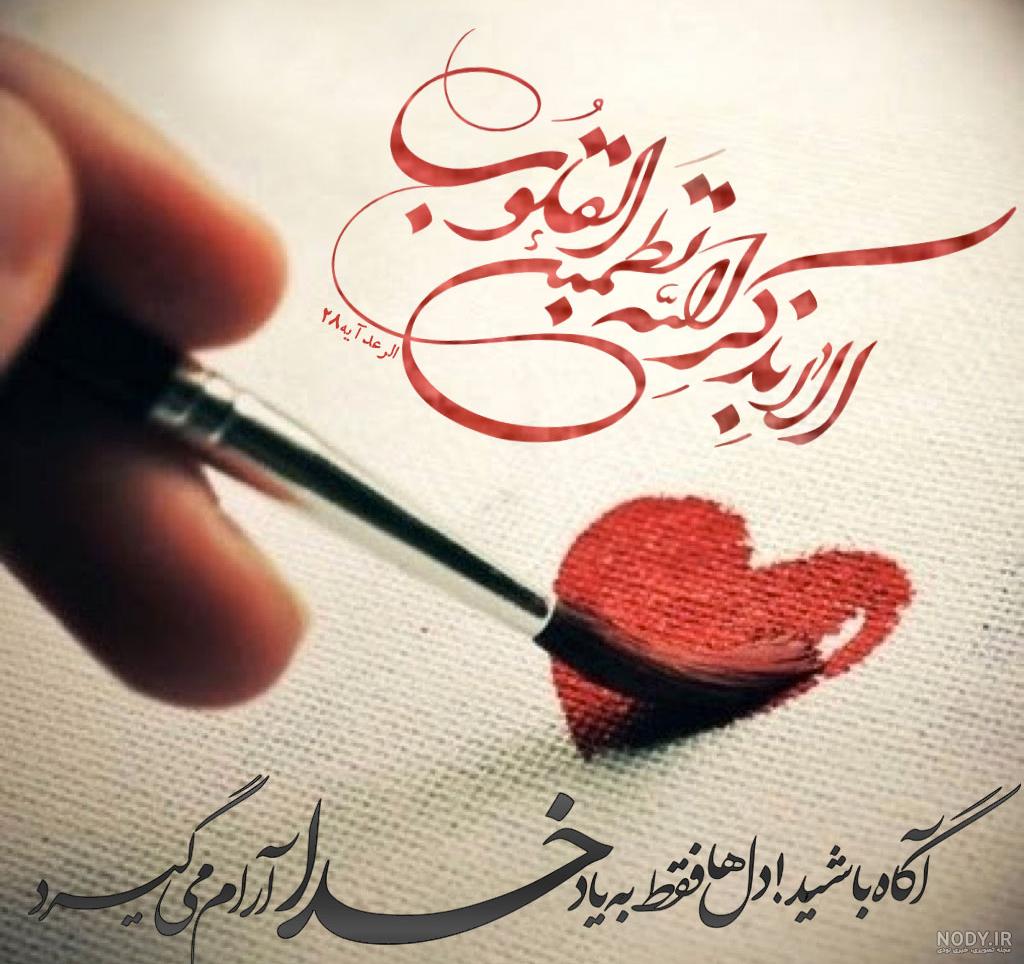 الا بذکر الله تطمئن القلوب
الرعد آیه ۲۸
آگاه باشید! دل ها فقط به یاد خدا آرام می گیرد
NODY.IR
مجله تصویری، خبری نودی